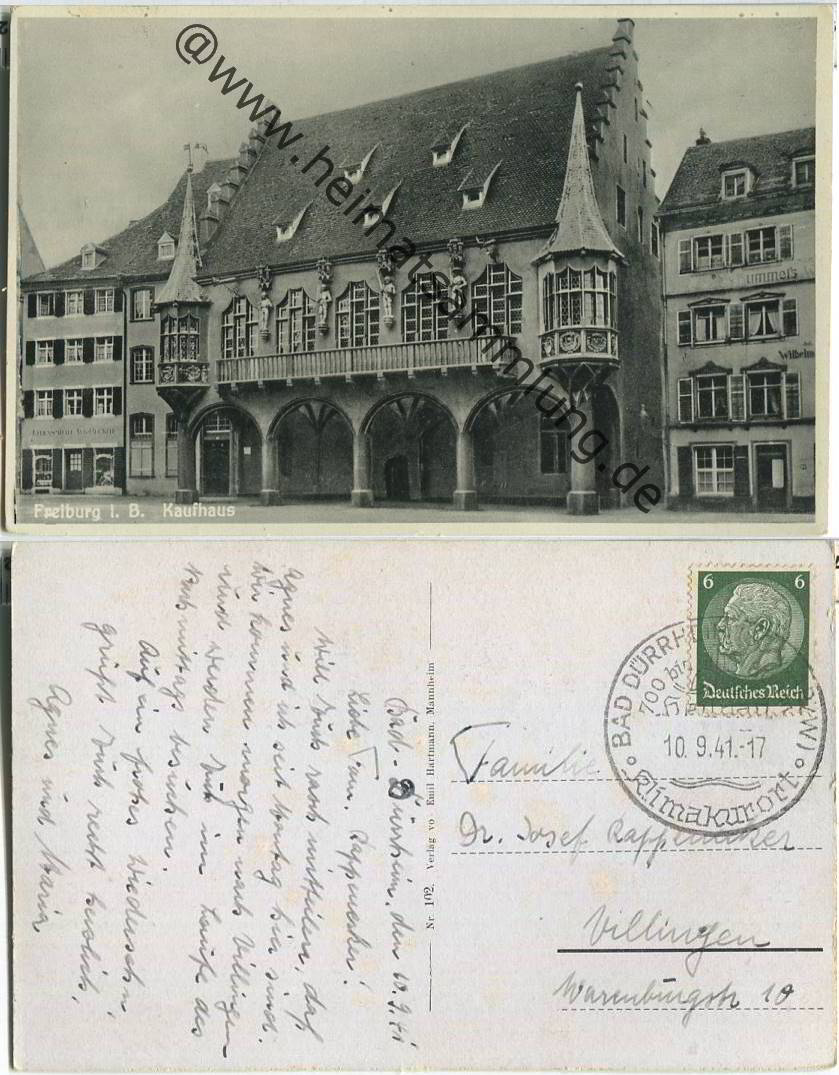 @www.heimatsammlung.de
Wilhelm
Freiburg i. B. Kaufhaus
Bad-Dürrheim, den 10.9.41
Liebe Fam. Rappenecker!
Will Euch rasch mitteilen, daß
Agnes und ich seit Montag hier sind.
Wir kommen morgen nach Villingen
und werden Euch im Laufe des
Nachmittags besuchen.
Auf ein frohes Wiedersehn
grüßt Euch recht herzlich,
Agnes und Maria
Nr. 102. Verlag vo Emil Hartmann, Mannheim
6 6
Deutsches Reich
BAD DÜRRH
700 bis
10.9.41.-17
Klimakurort
Familie
Dr. Josef Rappenecker
Villingen
Warenburgstr 10